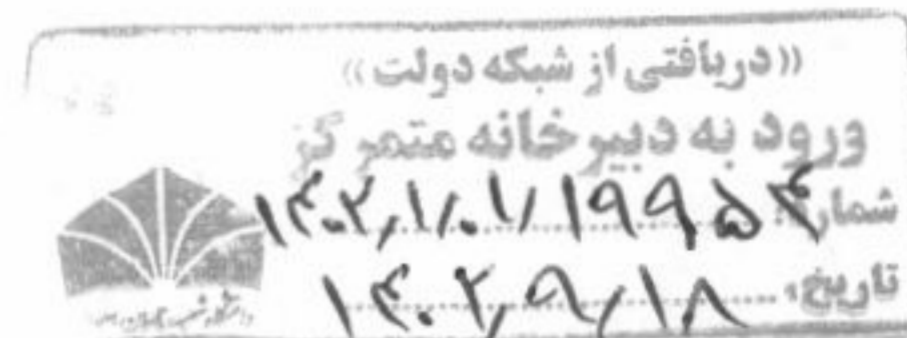 ((دریافتی از شبکه دولت))
ورود به دبیرخانه متمرکز
شماره: ۱۴۰۲/۱/۰۱/۱۹۹۵۴
تاریخ: ۱۴۰۲/۹/۱۸